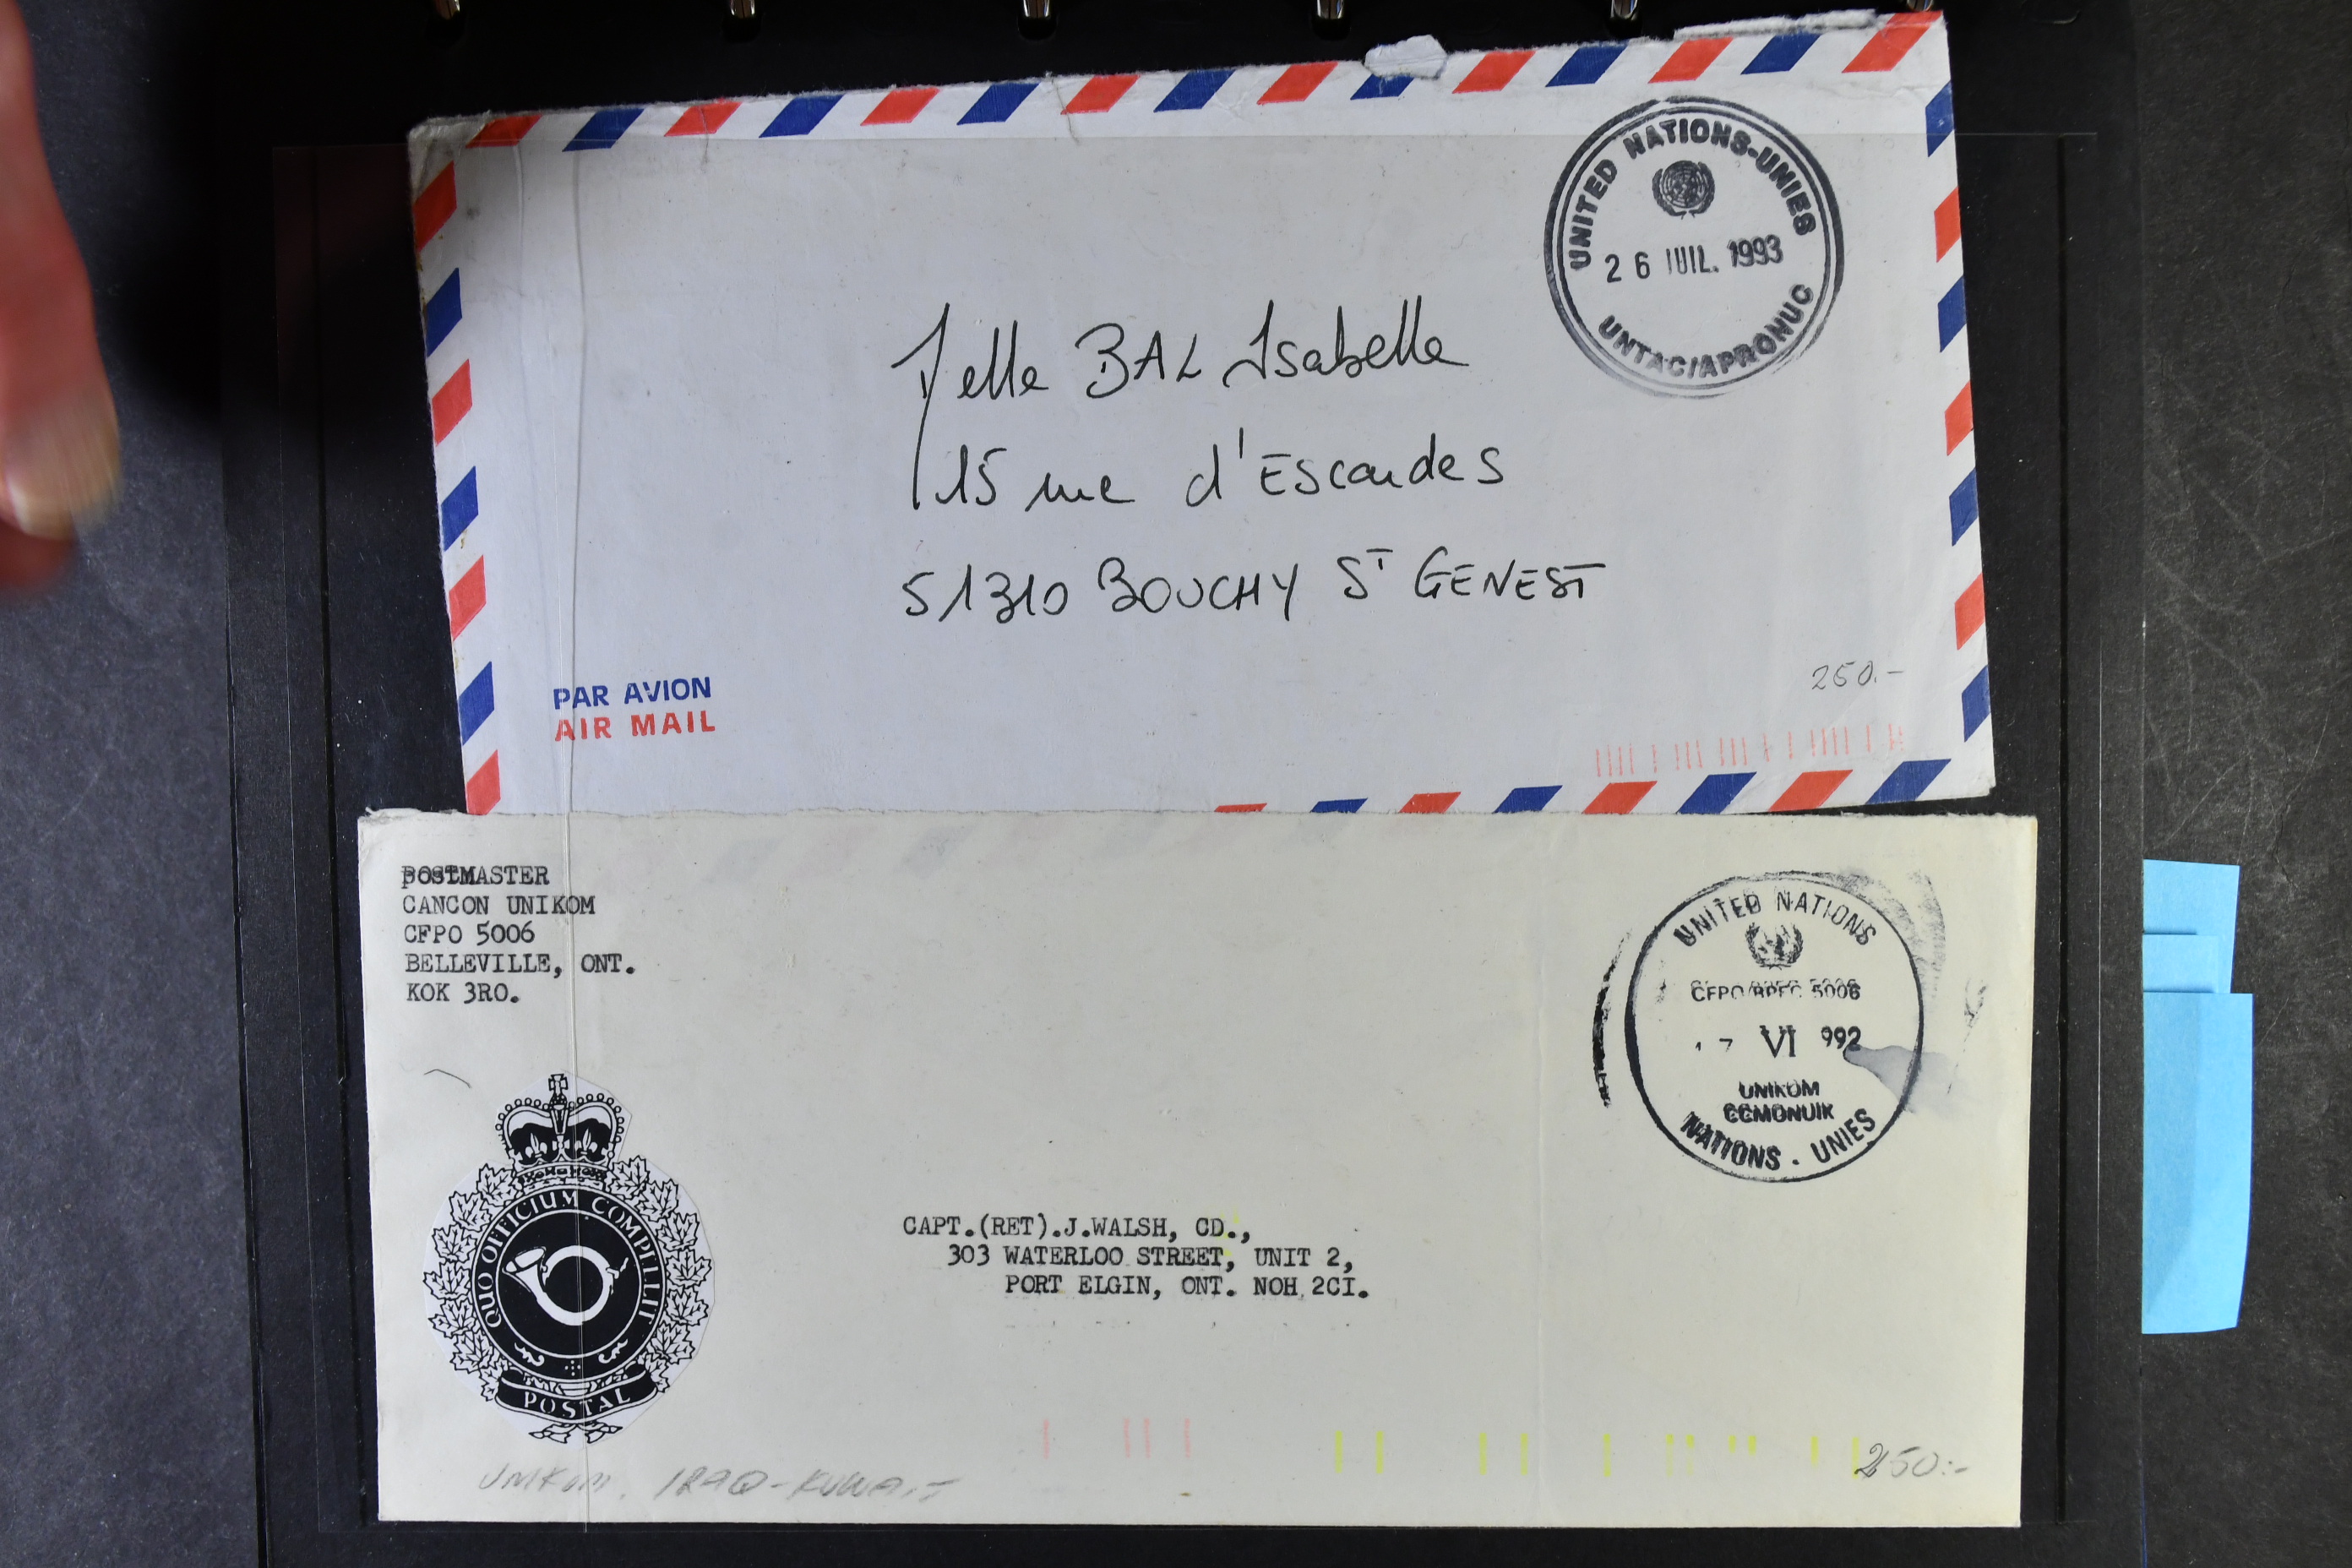 UNITED NATIONS-UNIES
26 JUIL. 1993
UNTAC/APRONUC
Melle BAL Isabelle
15 rue d'Escardes
51310 BOUCHY ST GENEST
250.-
PAR AVION
AIR MAIL
POSTMASTER
CANCON UNIKOM
CFPO 5006
BELLEVILLE, ONT.
KOK 3RO.
UNITED NATIONS
CFPO/BPFC 5006
17 VI 992
UNIKOM
NATIONS - UNIES
CAPT.(RET).J.WALSH, CD.,
303 WATERLOO STREET, UNIT 2,
PORT ELGIN, ONT. NOH 2CI.
QUO OFFICIUM COMPELLIT
POSTAL
UNIKOM. IRAQ-KUWAIT
250.-